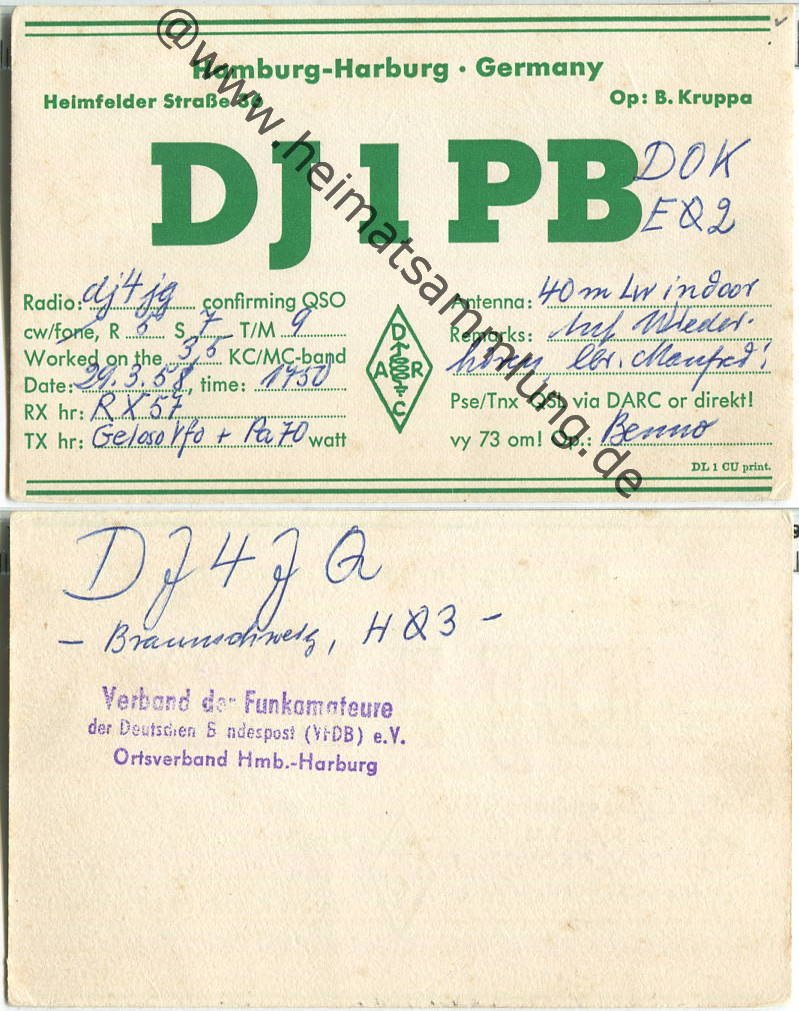 Hamburg-Harburg · Germany
Heimfelder Straße
Op: B. Kruppa
DJ1PB
DOK
EQ2
Radio: dj4jq confirming QSO
cw/fone, R 5 S 7 T/M 9
Worked on the 3,5 KC/MC-band
Date: 29.3.58, time: 1750
RX hr: RX57
TX hr: Geloso Vfo + Pa 70 watt
DARC
Antenna: 40m Lw indoor
Remarks: Auf Wieder-
hören, lbr. Manfred!
Pse/Tnx QSL via DARC or direkt!
vy 73 om! Op.: Benno
DL 1 CU print.
@www.heimatsammlung.de
DJ4JQ
- Braunschweig, HQ3 -
Verband der Funkamateure
der Deutschen Bundespost (VFDB) e.V.
Ortsverband Hmb.-Harburg